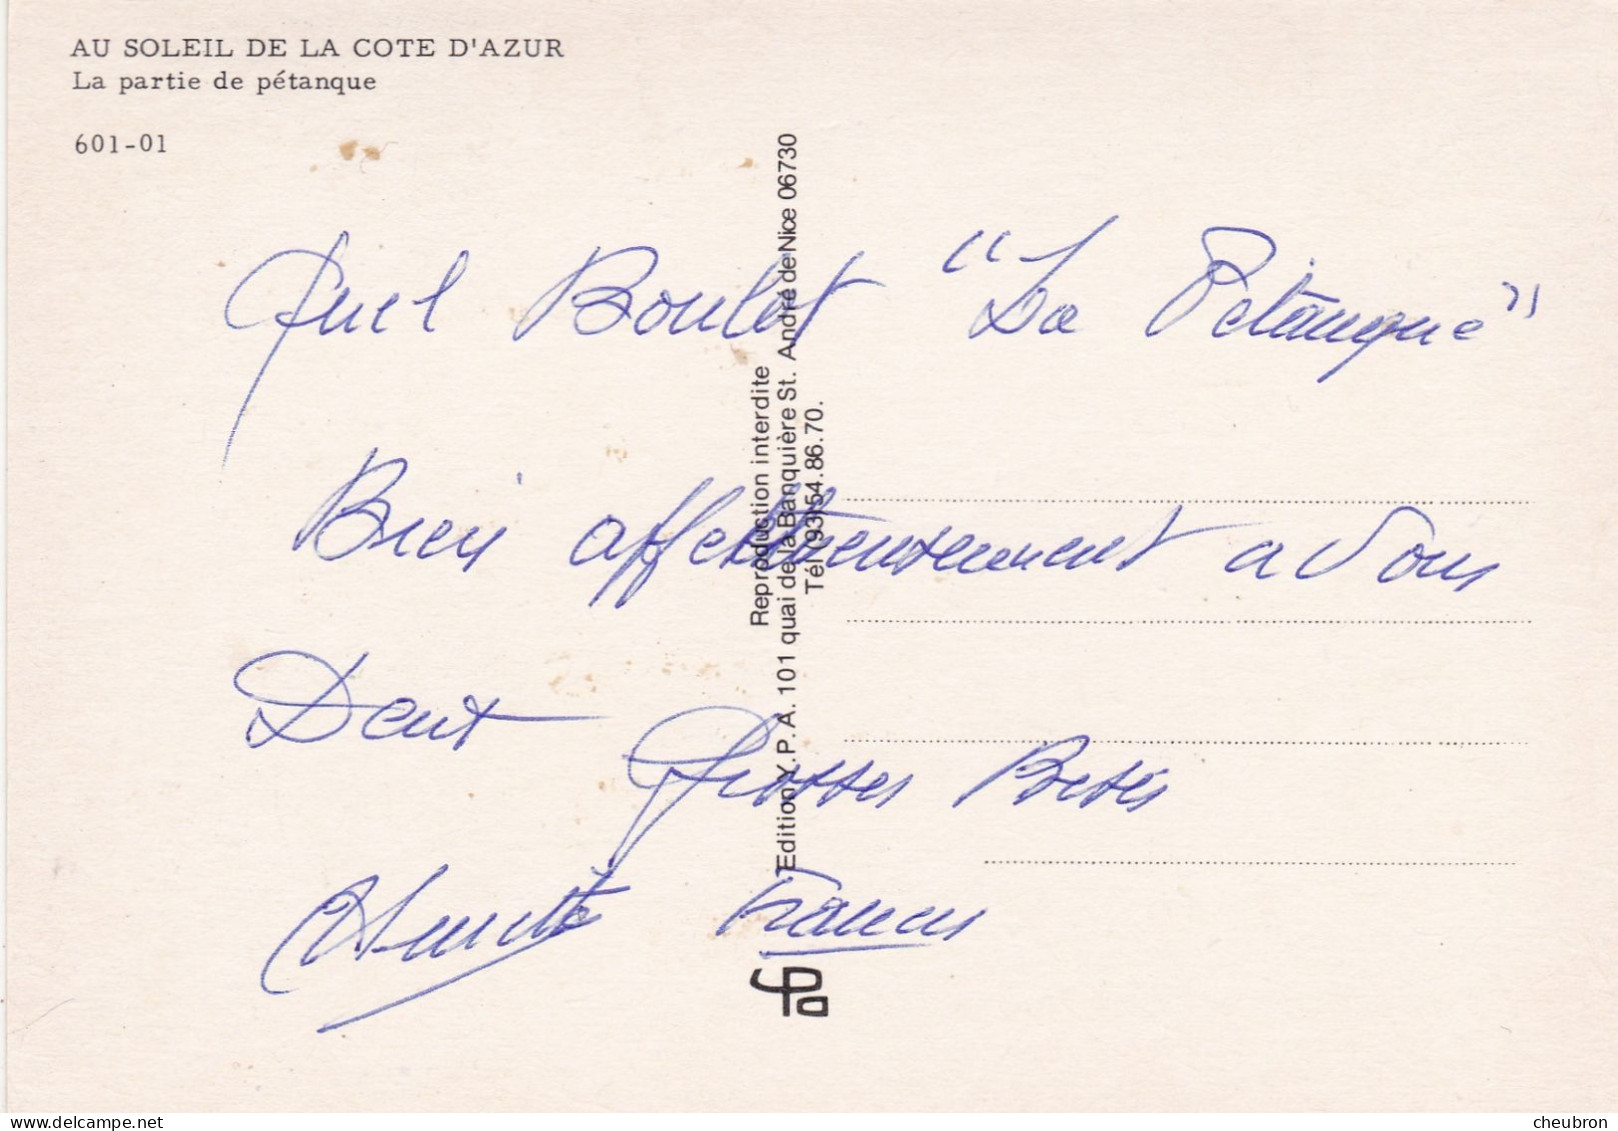 AU SOLEIL DE LA COTE D'AZUR
La partie de pétanque
601-01
Quel Boulot "La Pétanque"
Bien affectueusement a Vous
Deux Grosses Bises
Francis
Reproduction interdite
Edition Y.P.A. 101 quai de la Banquière St. André de Nice 06730
Tél (93) 54.86.70.
ypa
cheubron.com